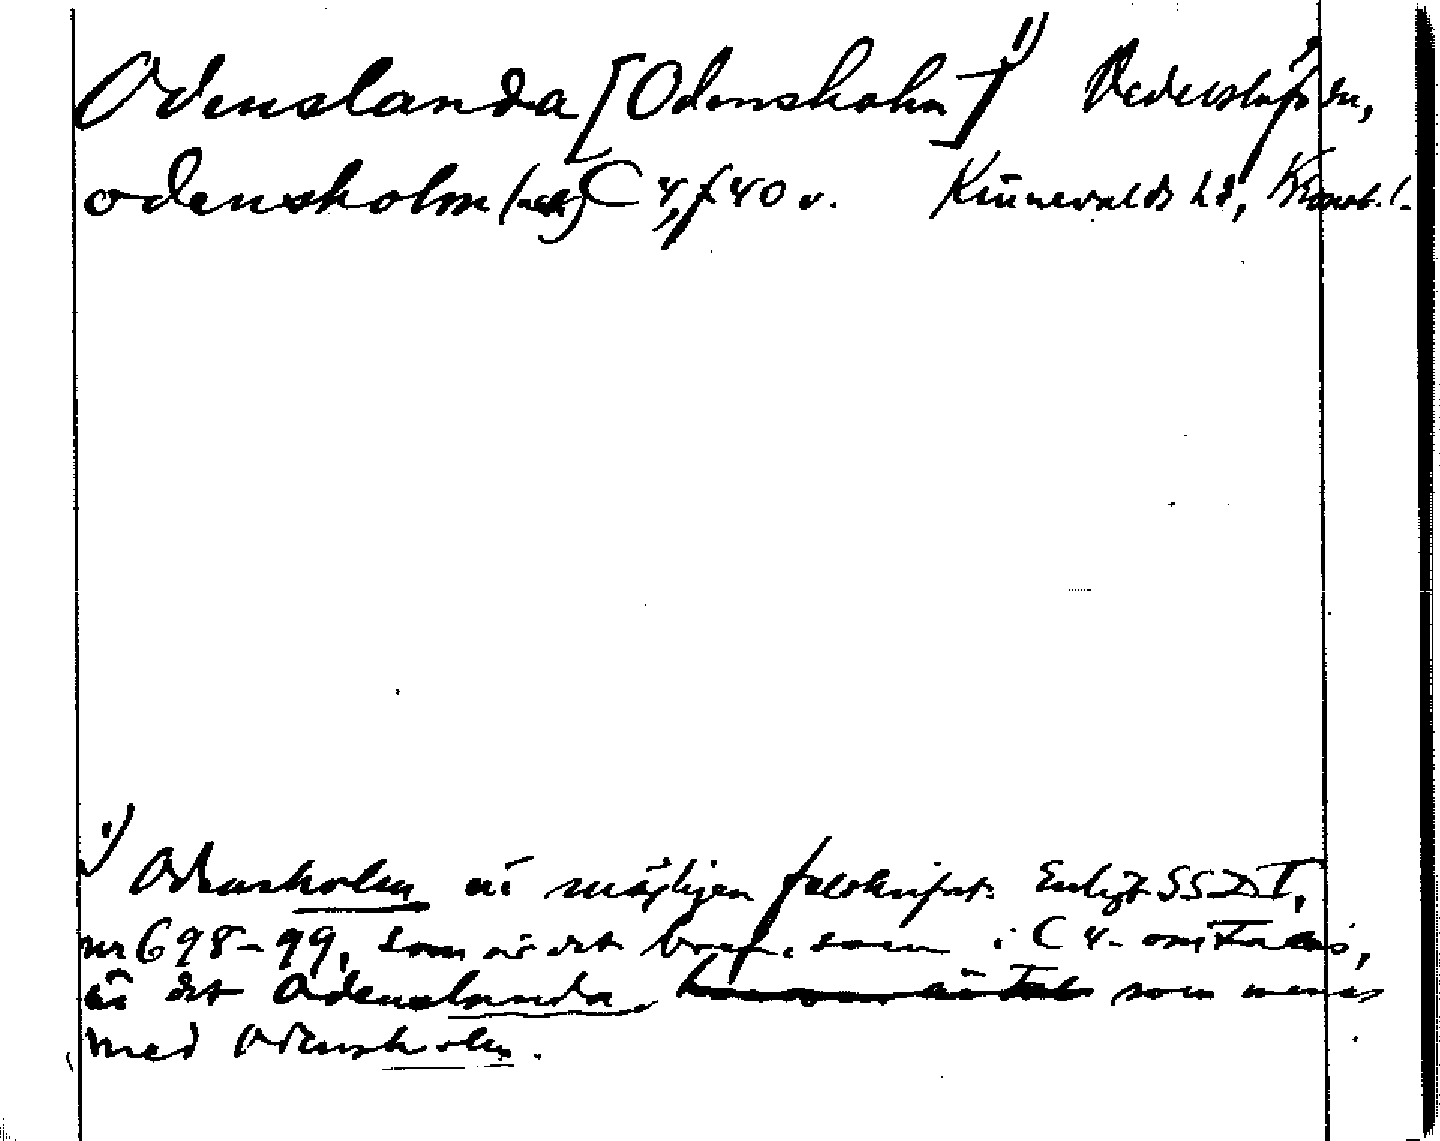 Odenslanda [Odensholm] 1) Vederslöfs sn,
odensholm (nek) C 4, f 40 v. Kinnevalds hd, Kronob. l.
1) Odensholm är möjligen felskrift. Enligt SSD I,
nr 698-99, som är det brev, som i C 4 omtalas,
är det Odenslanda, som menas
med Odensholm.